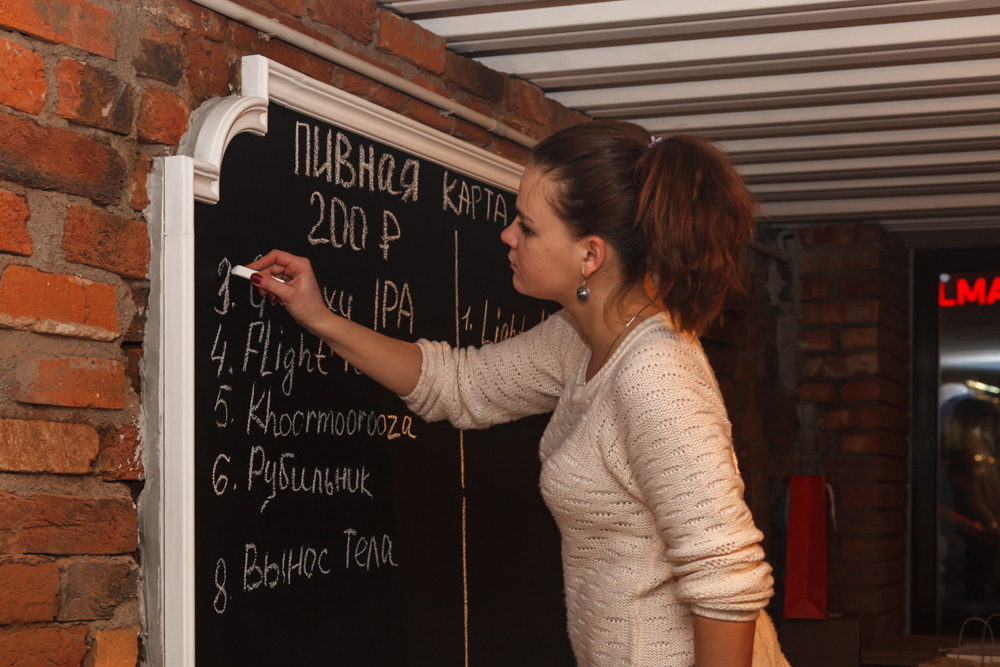 ПИВНАЯ КАРТА
200 ₽
3. IPA
4. Flight
5. Khoormoorooza
6. Рубильник
8 Вынос Тела
1. Light
LMA